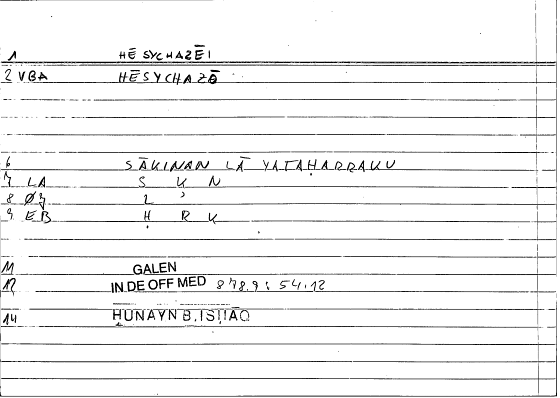 1 HĒSYCHAZĒI
2 VBA HĒSYCHAZŌ
6 SĀKINAN LĀ YATAḤARRAKU
7 LA S K N
8 ØZ L ʾ
9 EB Ḥ R K
11 GALEN
12 IN DE OFF MED 878.9 : 54.12
14 ḤUNAYN B. ISḤĀQ